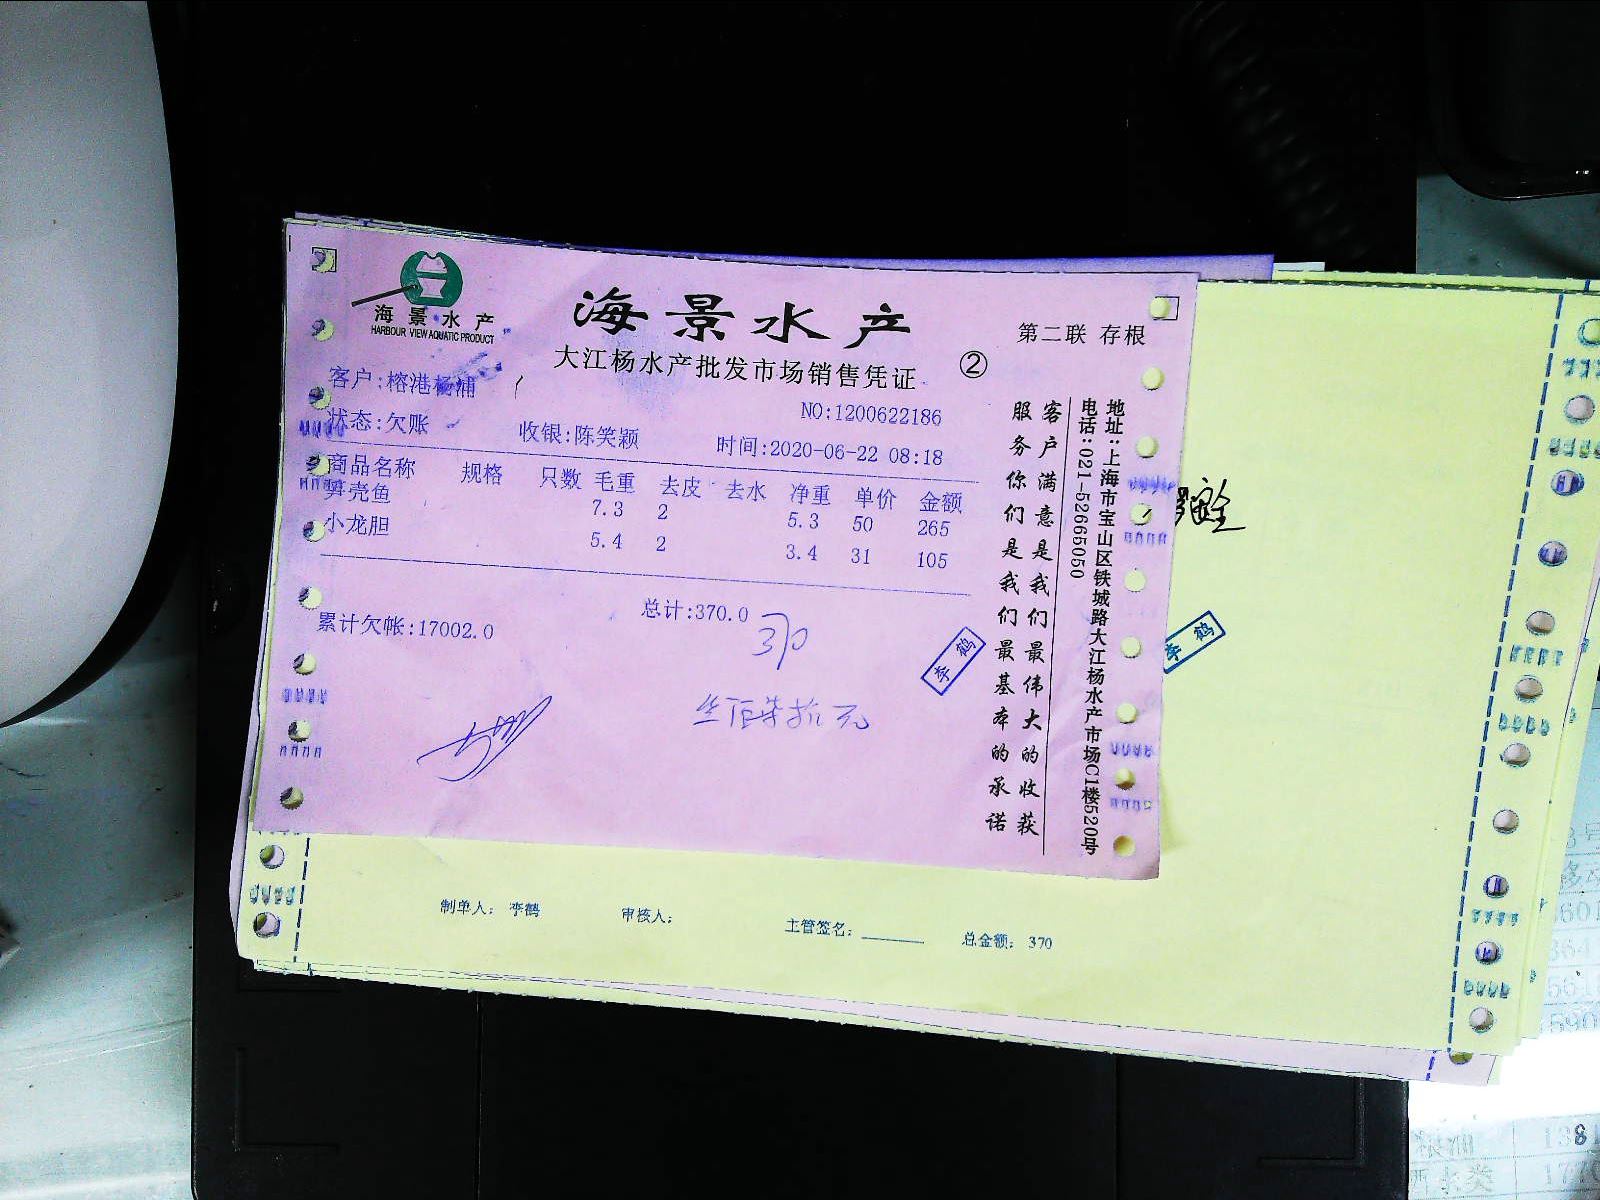 海景水产
HARBOUR VIEW AQUATIC PRODUCT
海景水产
大江杨水产批发市场销售凭证
②
第二联 存根
客户:榕港杨浦
NO:1200622186
状态:欠账 收银:陈笑颖 时间:2020-06-22 08:18
商品名称 规格 只数 毛重 去皮 去水 净重 单价 金额
笋壳鱼 7.3 2 5.3 50 265
小龙胆 5.4 2 3.4 31 105
累计欠帐:17002.0 总计:370.0
370
叁佰柒拾元
李鹤
客户满意是我们最伟大的收获
服务你们是我们最基本的承诺
地址:上海市宝山区铁城路大江杨水产市场C1楼520号
电话:021-52665050
李鹤
制单人: 李鹤 审核人: 主管签名: 总金额: 370